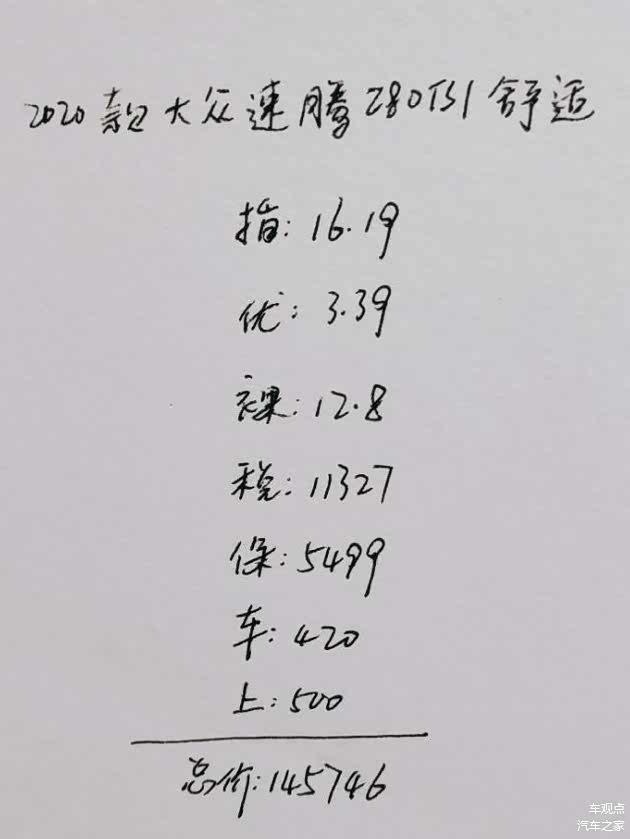 2020款大众速腾280TSI舒适
指:16.19
优:3.39
裸:12.8
税:11327
保:5499
车:420
上:500
总价:145746
车观点
汽车之家